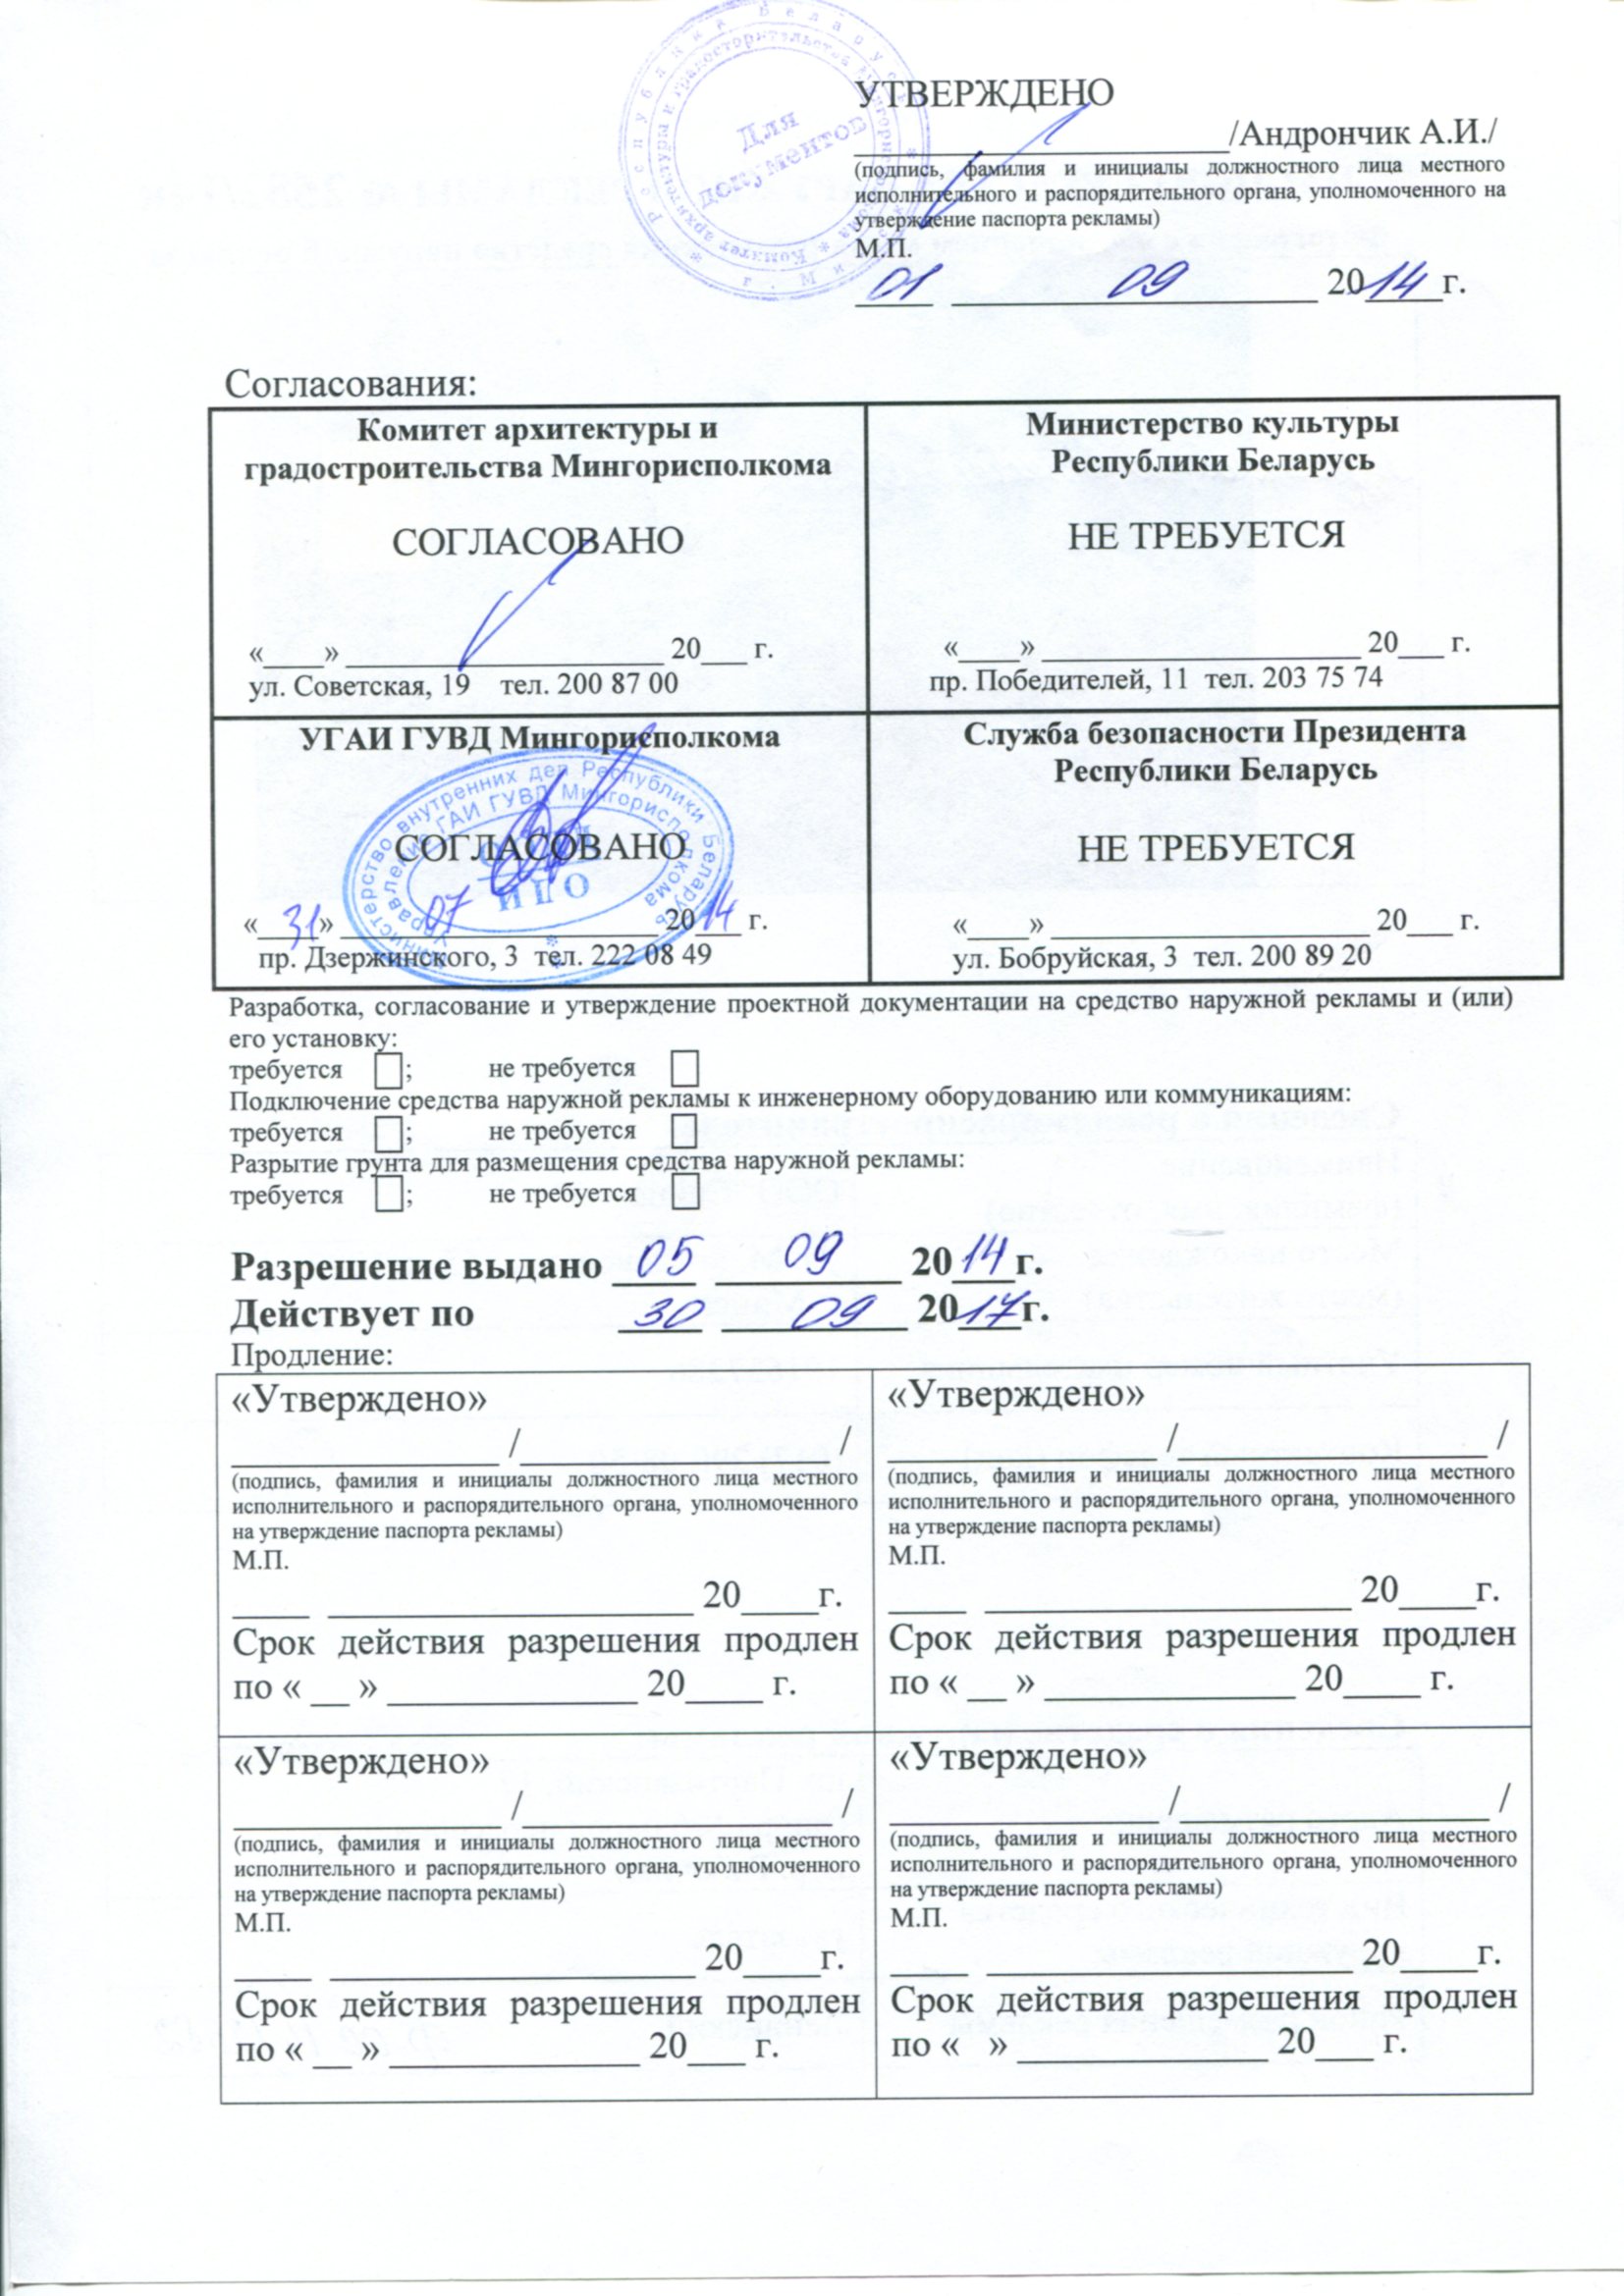 УТВЕРЖДЕНО
/Андрончик А.И./
(подпись, фамилия и инициалы должностного лица местного
исполнительного и распорядительного органа, уполномоченного на
утверждение паспорта рекламы)
М.П.
01 09 2014г.
Республика Беларусь * г. Минск *
Комитет архитектуры и градостроительства Мингорисполкома *
Для
документов
Согласования:
Комитет архитектуры и
градостроительства Мингорисполкома
СОГЛАСОВАНО
«____» ____________________ 20___ г.
ул. Советская, 19 тел. 200 87 00
Министерство культуры
Республики Беларусь
НЕ ТРЕБУЕТСЯ
«____» ____________________ 20___ г.
пр. Победителей, 11 тел. 203 75 74
УГАИ ГУВД Мингорисполкома
СОГЛАСОВАНО
Министерство внутренних дел Республики Беларусь
Управление ГАИ ГУВД Мингорисполкома
«31» 07 2014 г.
пр. Дзержинского, 3 тел. 222 08 49
Служба безопасности Президента
Республики Беларусь
НЕ ТРЕБУЕТСЯ
«____» ____________________ 20___ г.
ул. Бобруйская, 3 тел. 200 89 20
Разработка, согласование и утверждение проектной документации на средство наружной рекламы и (или)
его установку:
требуется ; не требуется
Подключение средства наружной рекламы к инженерному оборудованию или коммуникациям:
требуется ; не требуется
Разрытие грунта для размещения средства наружной рекламы:
требуется ; не требуется
Разрешение выдано 05 09 2014г.
Действует по 30 09 2017г.
Продление:
«Утверждено»
______________ /________________ /
(подпись, фамилия и инициалы должностного лица местного
исполнительного и распорядительного органа, уполномоченного
на утверждение паспорта рекламы)
М.П.
____ ___________________ 20____г.
Срок действия разрешения продлен
по « __ » _____________ 20____ г.
«Утверждено»
______________ /________________ /
(подпись, фамилия и инициалы должностного лица местного
исполнительного и распорядительного органа, уполномоченного
на утверждение паспорта рекламы)
М.П.
____ ___________________ 20____г.
Срок действия разрешения продлен
по « __ » _____________ 20____ г.
«Утверждено»
______________ /________________ /
(подпись, фамилия и инициалы должностного лица местного
исполнительного и распорядительного органа, уполномоченного
на утверждение паспорта рекламы)
М.П.
____ ___________________ 20____г.
Срок действия разрешения продлен
по « __ » _____________ 20___ г.
«Утверждено»
______________ /________________ /
(подпись, фамилия и инициалы должностного лица местного
исполнительного и распорядительного органа, уполномоченного
на утверждение паспорта рекламы)
М.П.
____ ___________________ 20____г.
Срок действия разрешения продлен
по « » _____________ 20___ г.